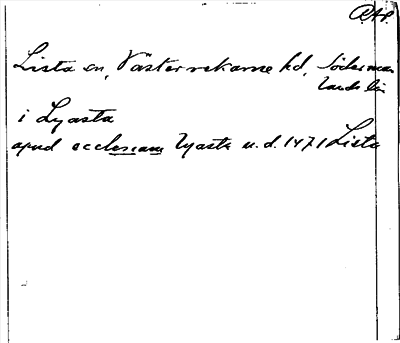 RAP.
Lista sn, Västerrekarne hd, Söderman
lands län
i Lyasta
apud ecclesiam Lyasta u.d. 1471 Lista